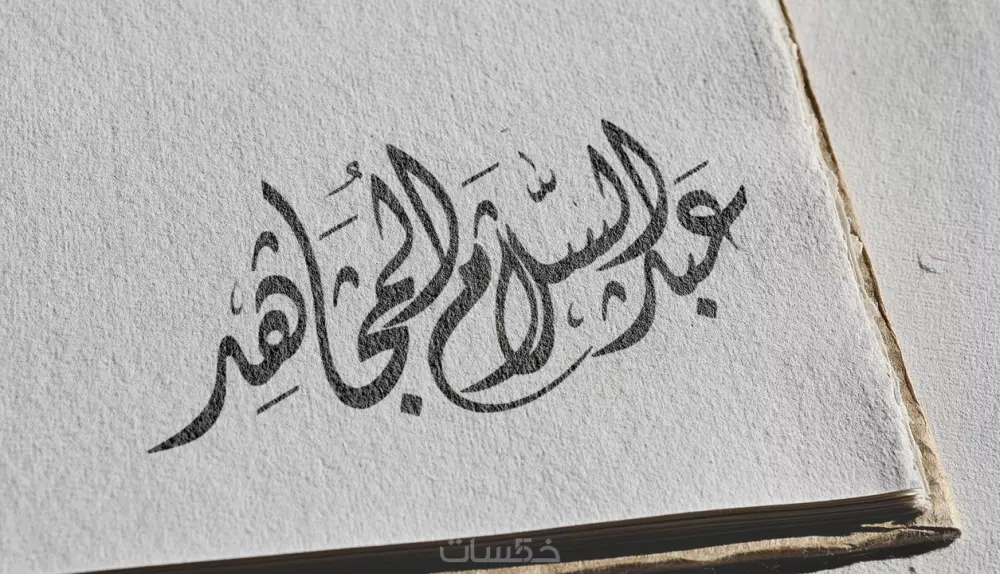 عبد السلام المجاهد
خمسات